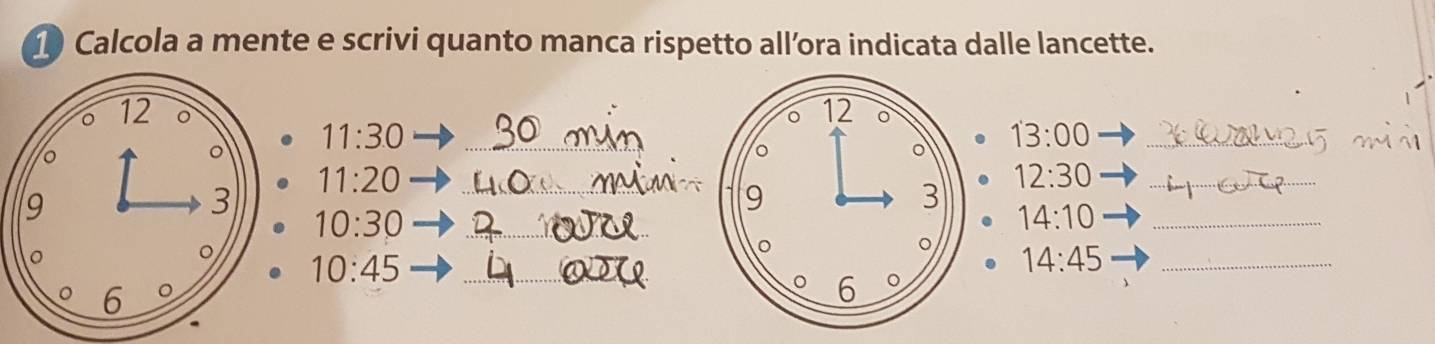 1 Calcola a mente e scrivi quanto manca rispetto all'ora indicata dalle lancette.
12
3
6
9
• 11:30 → 30 min
• 11:20 → 40 min
• 10:30 → 2
• 10:45 → 4 ore
12
3
6
9
• 13:00 → min
• 12:30 → 4 ore
• 14:10 →
• 14:45 →